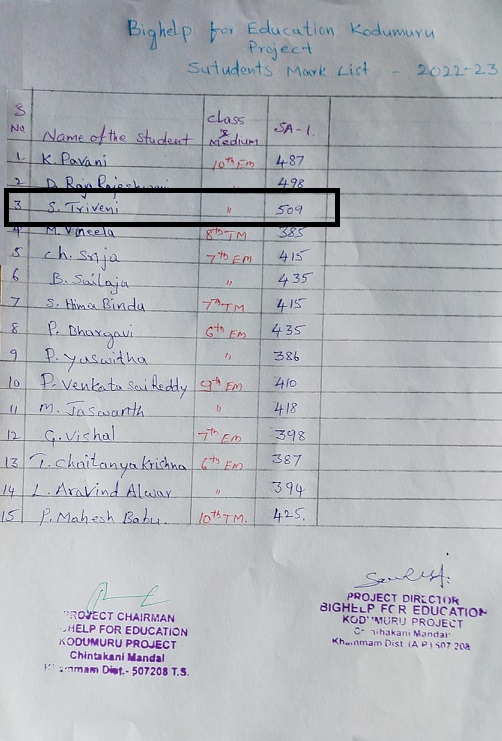 Bighelp for Education Kodumuru
Project
Sutudents Mark List - 2022-23
S No Name of the Student class & Medium SA-1.
1. K. Pavani 10th EM 487
2 D. Raja Rajeshwari " 498
3 S. Triveni " 509
4 M. Vineela 8th TM 385
5 Ch. Srija 7th EM 415
6 B. Sailaja " 435
7 S. Hima Bindu 7th TM 415
8 P. Bhargavi 6th EM 435
9 P. Yaswitha " 386
10 P. Venkata Sai Reddy 9th EM 410
11 M. Jaswanth " 418
12 G. Vishal 7th EM 398
13 T. Chaitanya Krishna 6th EM 387
14 L. Aravind Alwar " 394
15 P. Mahesh Babu. 10th TM. 425.
PROJECT CHAIRMAN
HELP FOR EDUCATION
KODUMURU PROJECT
Chintakani Mandal
Dist.- 507208 T.S.
PROJECT DIRECTOR
BIGHELP FOR EDUCATION
KODUMURU PROJECT
Chintakani Mandal
Khammam Dist (A P) 507 208